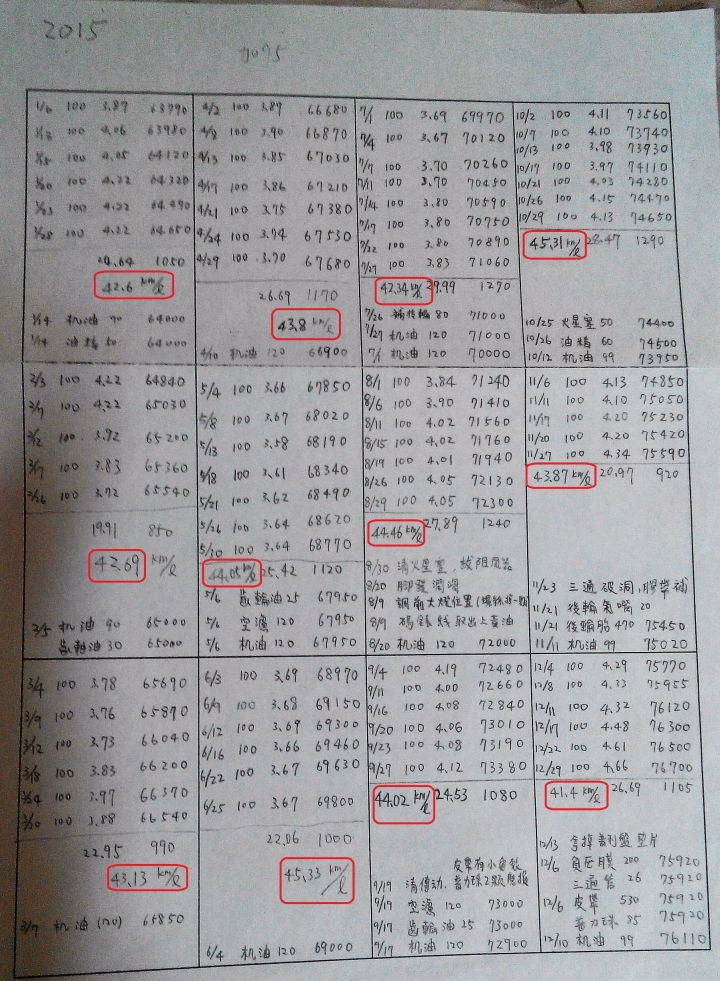 2015
加95
1/6 100 3.87 63790
1/12 100 4.06 63980
1/15 100 4.05 64120
1/20 100 4.22 64320
1/23 100 4.22 64490
1/28 100 4.22 64650
24.64 1050
42.6 km/l
1/14 机油 90 64000
1/14 油精 50 64000
4/2 100 3.89 66680
4/8 100 3.90 66870
4/13 100 3.85 67030
4/17 100 3.86 67210
4/21 100 3.75 67380
4/24 100 3.74 67530
4/29 100 3.70 67680
26.69 1170
43.8 km/l
4/10 机油 120 66900
7/1 100 3.69 69970
7/4 100 3.67 70120
7/9 100 3.70 70260
7/11 100 3.70 70450
7/14 100 3.80 70590
7/17 100 3.80 70750
7/22 100 3.80 70890
7/27 100 3.83 71060
42.34 km/l 29.99 1270
7/26 補後輪 80 71000
7/27 机油 120 71000
7/1 机油 120 70000
10/2 100 4.11 73560
10/7 100 4.10 73740
10/13 100 3.98 73930
10/17 100 3.97 74110
10/21 100 4.03 74280
10/26 100 4.15 74470
10/29 100 4.13 74650
45.31 km/l 28.47 1290
10/25 火星塞 50 74400
10/26 油精 60 74500
10/12 机油 99 73950
2/3 100 4.22 64840
2/7 100 4.22 65030
2/12 100 3.92 65200
2/17 100 3.83 65360
2/26 100 3.72 65540
19.91 850
42.69 km/l
2/5 机油 90 65000
齒輪油 30 65000
5/4 100 3.66 67850
5/8 100 3.67 68020
5/13 100 3.58 68190
5/18 100 3.61 68340
5/21 100 3.62 68490
5/26 100 3.64 68620
5/30 100 3.64 68770
44.05 km/l 25.42 1120
5/6 齒輪油 25 67950
5/6 空濾 120 67950
5/6 机油 120 67950
8/1 100 3.84 71240
8/6 100 3.90 71410
8/11 100 4.02 71560
8/15 100 4.02 71760
8/19 100 4.01 71940
8/26 100 4.05 72130
8/29 100 4.05 72300
44.46 km/l 27.89 1240
8/30 清火星塞,
8/20 腳發潤滑
8/9 調前大燈位置
8/9 碼錶線取出上黃油
8/20 机油 120 72000
11/6 100 4.13 74850
11/11 100 4.10 75050
11/17 100 4.20 75230
11/20 100 4.20 75420
11/27 100 4.34 75590
43.87 km/l 20.97 920
11/23 三通破洞,膠帶補
11/21 後輪氣嘴 20
11/21 後輪胎 470 75450
11/11 机油 99 75020
3/4 100 3.78 65690
3/9 100 3.76 65890
3/12 100 3.73 66040
3/18 100 3.83 66200
3/24 100 3.97 66370
3/30 100 3.88 66540
22.95 990
43.13 km/l
3/7 机油 (120) 65850
6/3 100 3.69 68970
6/9 100 3.68 69150
6/12 100 3.69 69300
6/16 100 3.66 69460
6/22 100 3.67 69630
6/25 100 3.67 69800
22.06 1000
45.33 km/l
6/4 机油 120 69000
9/4 100 4.19 72480
9/11 100 4.00 72660
9/16 100 4.08 72840
9/20 100 4.06 73010
9/23 100 4.08 73190
9/27 100 4.12 73380
44.02 km/l 24.53 1080
皮帶有小龜裂
9/19 清傳动.普力珠2顆磨損
9/19 空濾 120 73000
9/17 齒輪油 25 73000
9/17 机油 120 72900
12/4 100 4.29 75770
12/8 100 4.33 75955
12/11 100 4.32 76120
12/17 100 4.48 76300
12/22 100 4.61 76500
12/29 100 4.66 76700
41.4 km/l 26.69 1105
12/13 拿掉普利盤墊片
12/6 負压膜 200 75920
三通管 26 75920
12/6 皮帶 530 75920
普力珠 85 75920
12/10 机油 99 76110